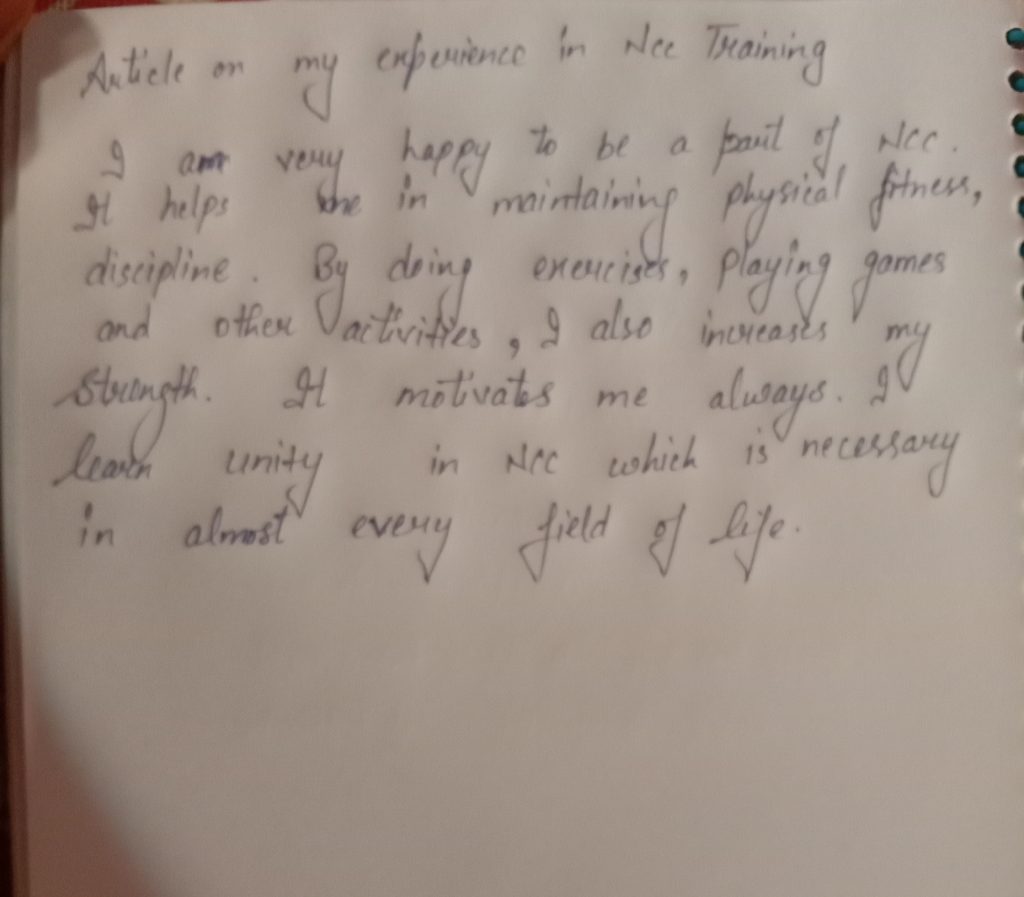 Article on my experience in Ncc Training
I am very happy to be a part of Ncc.
It helps me in maintaining physical fitness,
discipline. By doing exercises, playing games
and other activities, I also increases my
strength. It motivates me always. I
learn unity in Ncc which is necessary
in almost every field of life.